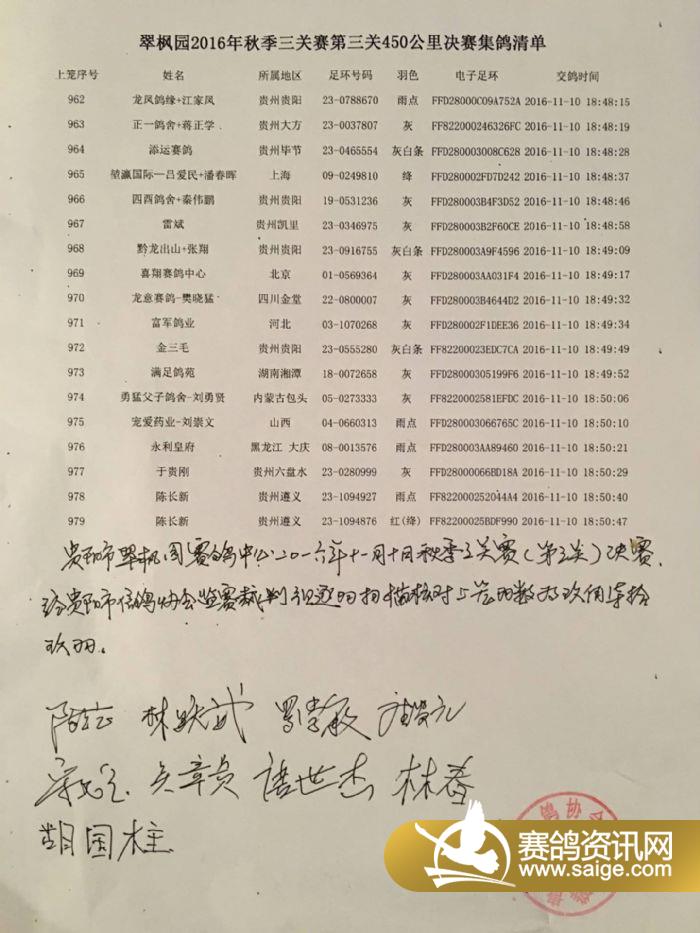 翠枫园2016年秋季三关赛第三关450公里决赛集鸽清单
上笼序号 姓名 所属地区 足环号码 羽色 电子足环 交鸽时间
962 龙凤鸽缘+江家凤 贵州贵阳 23-0788670 雨点 FFD28000C09A752A 2016-11-10 18:48:15
963 正一鸽舍+蒋正学 贵州大方 23-0037807 灰 FF822000246326FC 2016-11-10 18:48:19
964 添运赛鸽 贵州毕节 23-0465554 灰白条 FFD280003008C628 2016-11-10 18:48:28
965 堃瀛国际—吕爱民+潘春晖 上海 09-0249810 绛 FFD280002FD7D242 2016-11-10 18:48:37
966 四酉鸽舍+秦伟鹏 贵州贵阳 19-0531236 灰 FFD280003B4F3D52 2016-11-10 18:48:46
967 雷斌 贵州凯里 23-0346975 灰 FFD280003B2F60CE 2016-11-10 18:48:58
968 黔龙出山+张翔 贵州贵阳 23-0916755 灰白条 FFD280003A9F4596 2016-11-10 18:49:09
969 喜翔赛鸽中心 北京 01-0569364 灰 FFD280003AA031F4 2016-11-10 18:49:17
970 龙意赛鸽-樊晓猛 四川金堂 22-0800007 灰 FFD280003B4644D2 2016-11-10 18:49:32
971 富军鸽业 河北 03-1070268 灰 FFD280002F1DEE36 2016-11-10 18:49:34
972 金三毛 贵州贵阳 23-0555280 灰白条 FF82200023EDC7CA 2016-11-10 18:49:49
973 满足鸽苑 湖南湘潭 18-0072658 灰 FFD28000305199F6 2016-11-10 18:49:52
974 勇猛父子鸽舍-刘勇贤 内蒙古包头 05-0273333 灰 FF8220002581EFDC 2016-11-10 18:50:06
975 宠爱药业-刘崇文 山西 04-0660313 雨点 FFD280003066765C 2016-11-10 18:50:10
976 永利皇府 黑龙江 大庆 08-0013576 雨点 FFD280003AA89460 2016-11-10 18:50:21
977 于贵刚 贵州六盘水 23-0280999 灰 FFD28000066BD18A 2016-11-10 18:50:29
978 陈长新 贵州遵义 23-1094927 雨点 FF822000252044A4 2016-11-10 18:50:40
979 陈长新 贵州遵义 23-1094876 红(绛) FF82200025BDF990 2016-11-10 18:50:47
贵阳市翠枫园赛鸽中心二〇一六年十一月十日秋季三关赛(第三关)决赛,
经贵阳市信鸽协会监赛裁判 扫描核对上笼羽数为玖佰柒拾
玖羽。
林跃武
吴章贵 诸世杰 林春
胡国柱
鸽协
赛鸽资讯网
www.saige.com